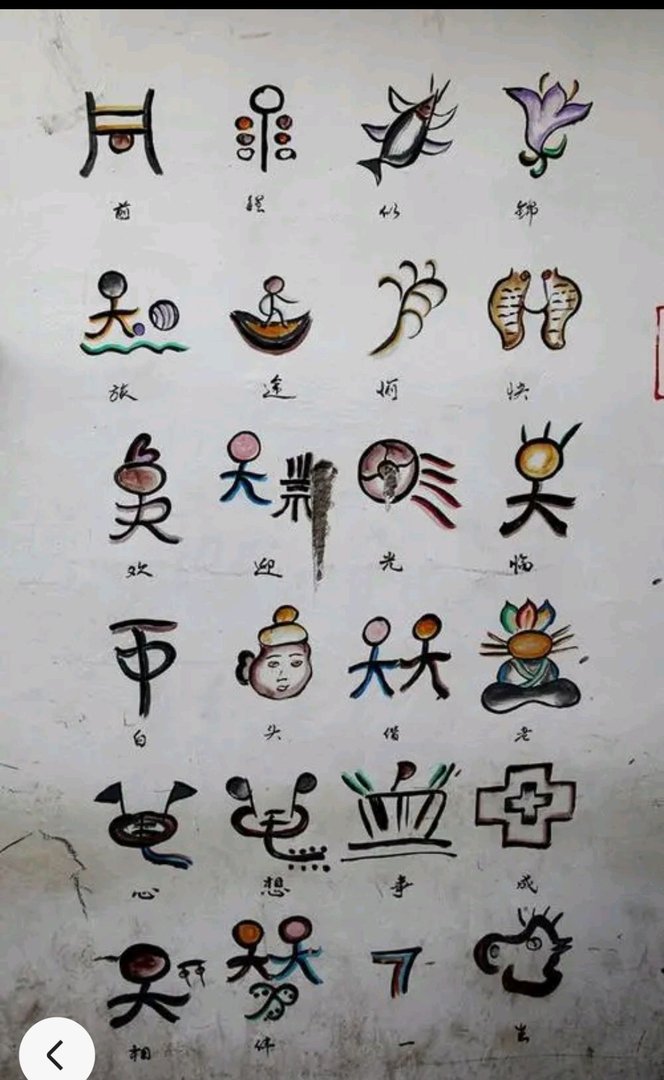 前 程 似 锦
旅 途 愉 快
欢 迎 光 临
白 头 偕 老
心 想 事 成
相 伴 一 生